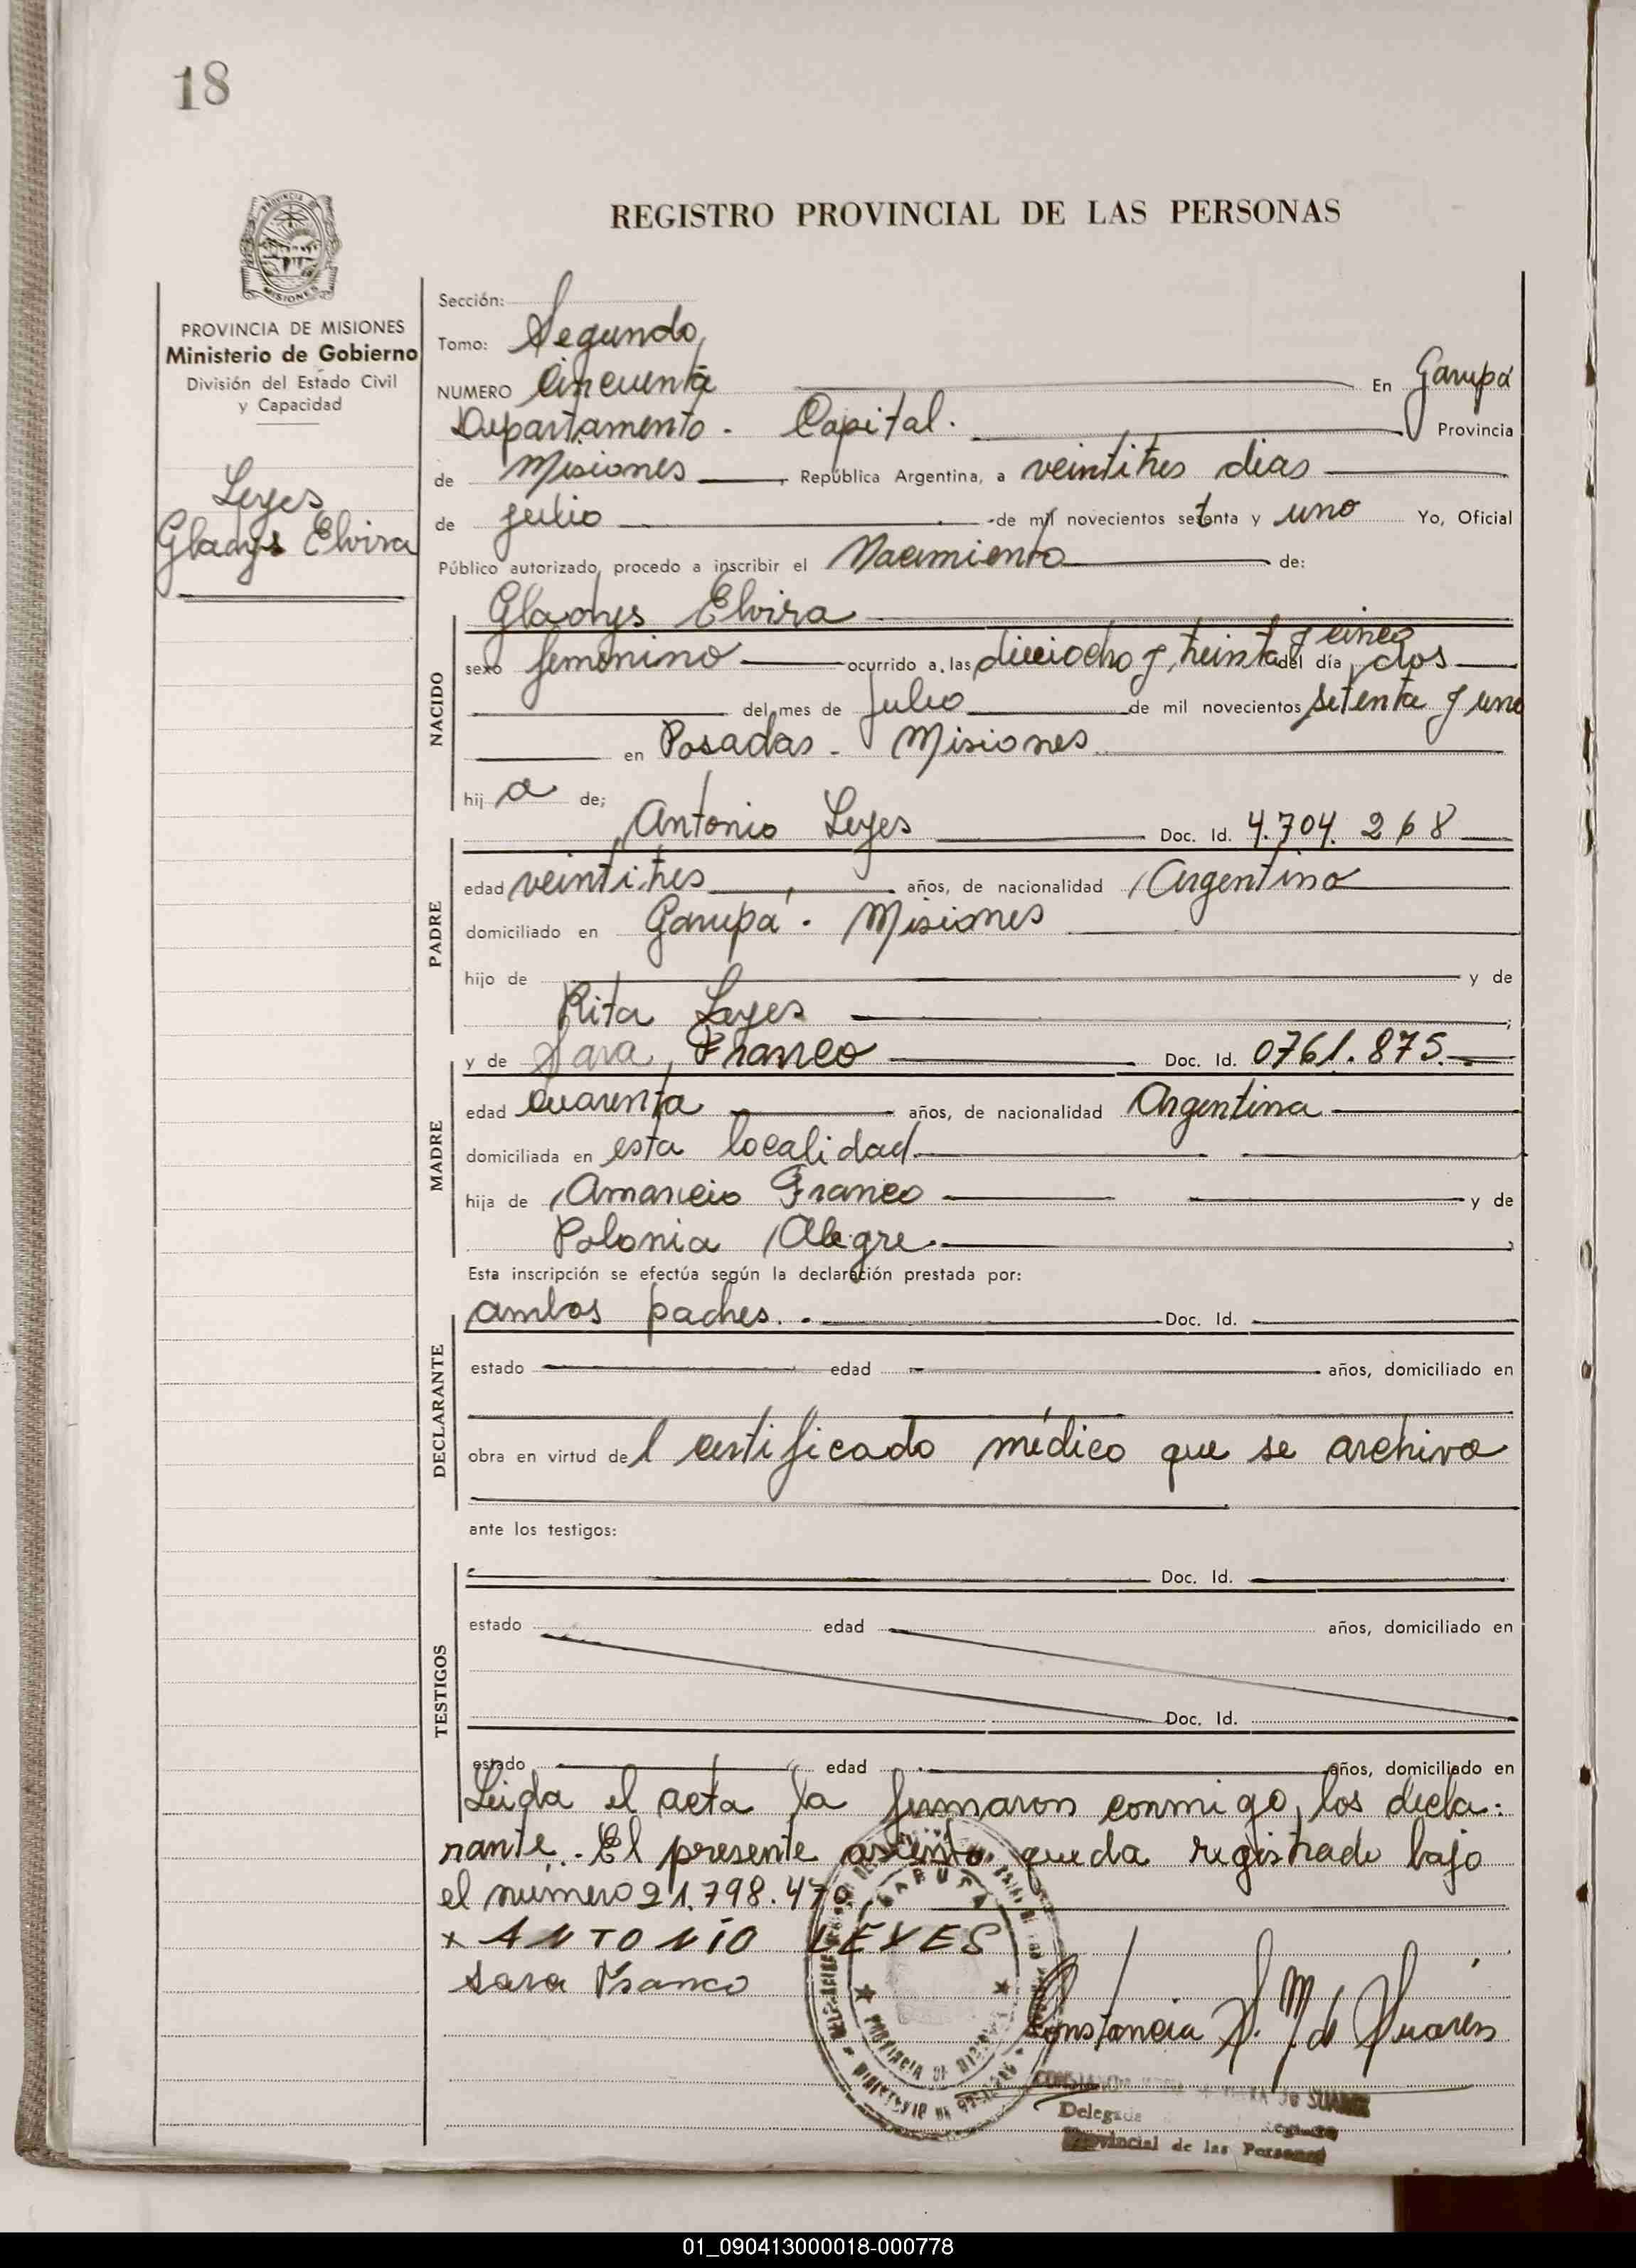 18
REGISTRO PROVINCIAL DE LAS PERSONAS
PROVINCIA DE MISIONES
Ministerio de Gobierno
División del Estado Civil
y Capacidad
Leyes
Gladys Elvira
Sección:
Tomo: Segundo
NUMERO Cincuenta En Garupá
Departamento - Capital. Provincia
de Misiones, República Argentina, a veintitres dias
de julio de mil novecientos setenta y uno Yo, Oficial
Público autorizado, procedo a inscribir el Nacimiento de:
NACIDO
Gladys Elvira
sexo femenino ocurrido a las dieciocho y treinta y cinco del día dos
del mes de Julio de mil novecientos setenta y uno
en Posadas - Misiones
hij a de;
PADRE
Antonio Leyes Doc. Id. 4.704.268
edad veintitres años, de nacionalidad Argentina
domiciliado en Garupá - Misiones
hijo de y de
Rita Leyes ;
MADRE
y de Sara Franco Doc. Id. 0761.875
edad cuarenta años, de nacionalidad Argentina
domiciliada en esta localidad
hija de Amancio Franco y de
Polonia Alegre.
Esta inscripción se efectúa según la declaración prestada por:
DECLARANTE
ambos padres. Doc. Id.
estado edad años, domiciliado en
obra en virtud del certificado médico que se archiva
ante los testigos:
TESTIGOS
Doc. Id.
estado edad años, domiciliado en
Doc. Id.
estado edad años, domiciliado en
Leida el acta la firmaron conmigo, los decla-
rante. El presente asiento queda registrado bajo
el numero 21.798.470
x ANTONIO LEYES
Sara Franco
Constancia M. de Suarez
GARUPA
PROVINCIA DE MISIONES
SUAREZ
Delegada
Provincial de las Personas
01_090413000018-000778